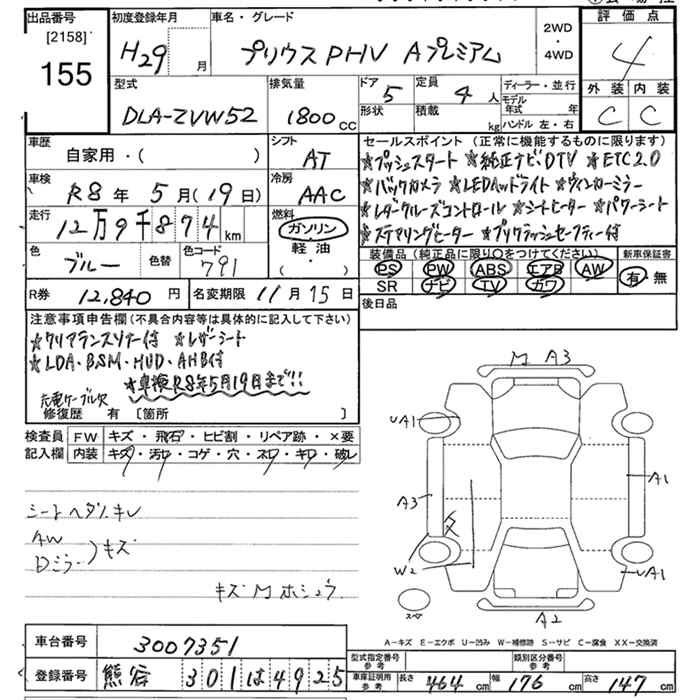 出品番号
[2158]
155
初度登録年月
H29 月
車名・グレード
プリウスPHV Aプレミアム
2WD
・
4WD
評価点
4
外装 内装
C C
型式
DLA-ZVW52
排気量
1800 CC
ドア 5
形状
定員 4 人
積載 kg
ディーラー・並行
モデル年式 年
ハンドル 左・右
車歴
自家用・( )
シフト
AT
車検
R8年 5月(19日)
冷房
AAC
走行
12万9千874km
燃料
ガソリン
・
軽油
色
ブルー
色替
色コード
791
R券 12,840円
名変期限 11月15日
セールスポイント (正常に機能するものに限ります)
★プッシュスタート ★純正ナビDTV ★ETC2.0
★バックカメラ ★LEDヘッドライト ★ウィンカーミラー
★レーダークルーズコントロール ★シートヒーター ★パワーシート
★ステアリングヒーター ★プリクラッシュセーフティー付
装備品 (純正品に限り○をつけてください)
新車保証書
PS PW ABS エアB AW
SR ナビ TV カワ
有・無
後日品
注意事項申告欄 (不具合内容等は具体的に記入して下さい)
★クリアランスソナー付 ★レザーシート
★LDA・BSM・HUD・AHB付
★車検R8年5月19日まで!!
充電ケーブル欠
修復歴 有 [箇所 ]
検査員記入欄
FW キズ・飛石・ヒビ割・リペア跡・×要
内装 キズ・汚れ・コゲ・穴・ネロ・キロ・破レ
シートヘタリ・キレ
AW
Dミラー
)キズ
キズMホシュウ
M A3
UA1
A1
A3
W2
UA1
スペア
A2
A-キズ E-エクボ U-凹み W-補修跡 S-サビ C-腐食 XX-交換済
車台番号
3007351
登録番号
熊谷 301 は 4925
型式指定番号 参考
類別区分番号 参考
車庫証明用 参考
長さ 464 cm 幅 176 cm 高さ 147 cm